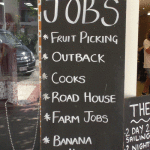 JOBS
* FRUIT PICKING
* OUTBACK
* COOKS
* ROAD HOUSE
* FARM JOBS
* BANANA
THE
2 DAY 2
SAILING
2 NIGHT